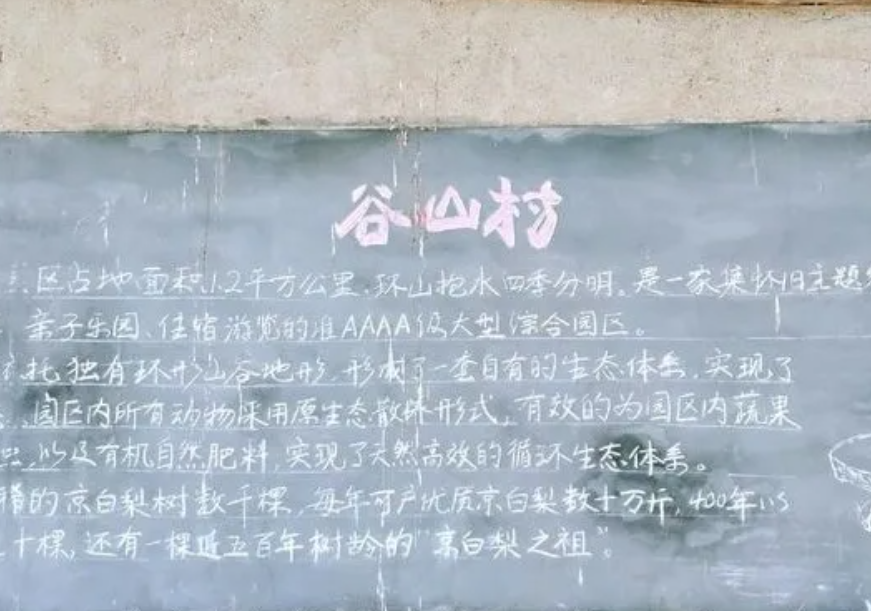 谷山村
区占地面积1.2平方公里,环山抱水四季分明。是一家集怀旧主题
亲子乐园、住宿游览的准AAAA级大型综合园区。
托独有环形山谷地形,形成了一套自有的生态体系,实现了
园区内所有动物采用原生态散养形式,有效的为园区内蔬果
以及有机自然肥料,实现了天然高效的循环生态体系。
的京白梨树数千棵,每年可产优质京白梨数十万斤,400年以
十棵,还有一棵近五百年树龄的“京白梨之祖”。